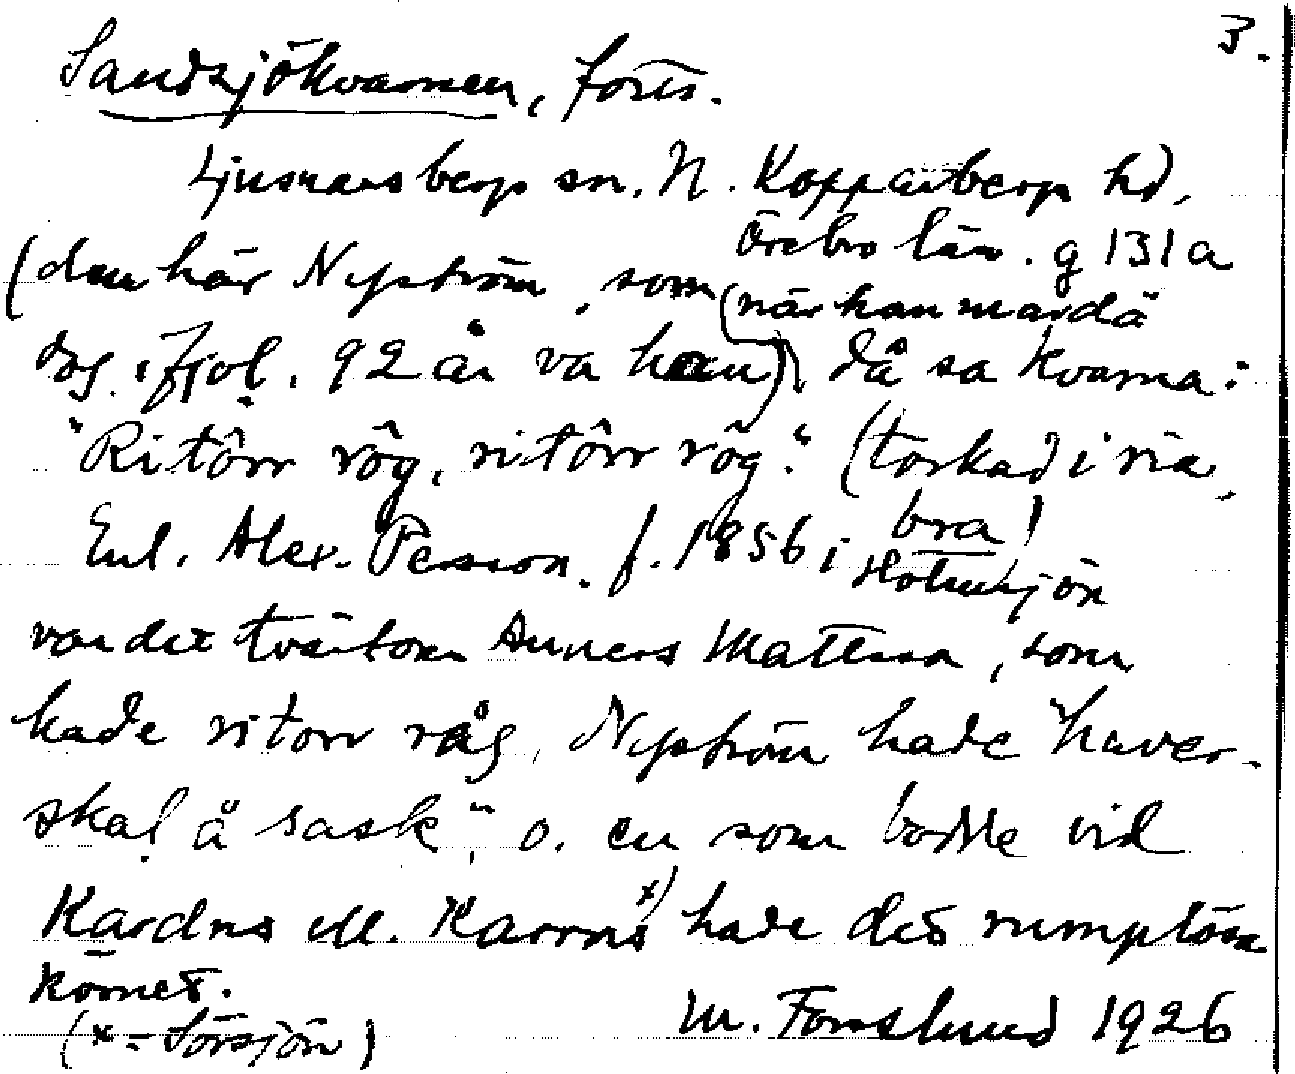 3.
Sandsjökvarnen, forts.
Ljusnarsbergs sn. N. Kopparbergs hd,
Örebro län. g 131 a
(den här Nyström, som
(när han mard
dog ifjol. 92 år va han), då sa kvarna:
"Ritôrr rôg, ritôrr rôg." (torkad i ria,
bra!
Enl. Alex. Persson. f. 1856 i
var det tvärtom Anners Mattssa, som
hade ritorr råg, Nyström hade "haver-
skal å sask", o. en som bodde vid
Kardns ell. Karrns x) hade det rumplösa
körnet.
(x = Sörsjön)
M. Forslund 1926